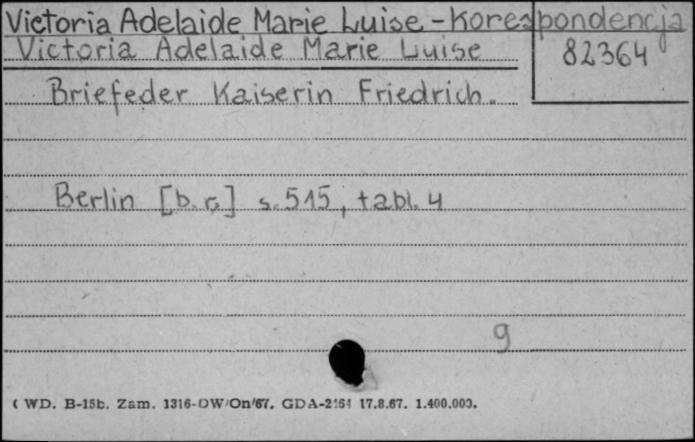 Victoria Adelaide Marie Luise - Korespondencja
82364
Victoria Adelaide Marie Luise
Briefeder Kaiserin Friedrich.
Berlin [b.r.] s. 515, tabl. 4
9
WD. B-15b. Zam. 1316-OW/On/67. GDA-2164 17.8.67. 1.400.000.